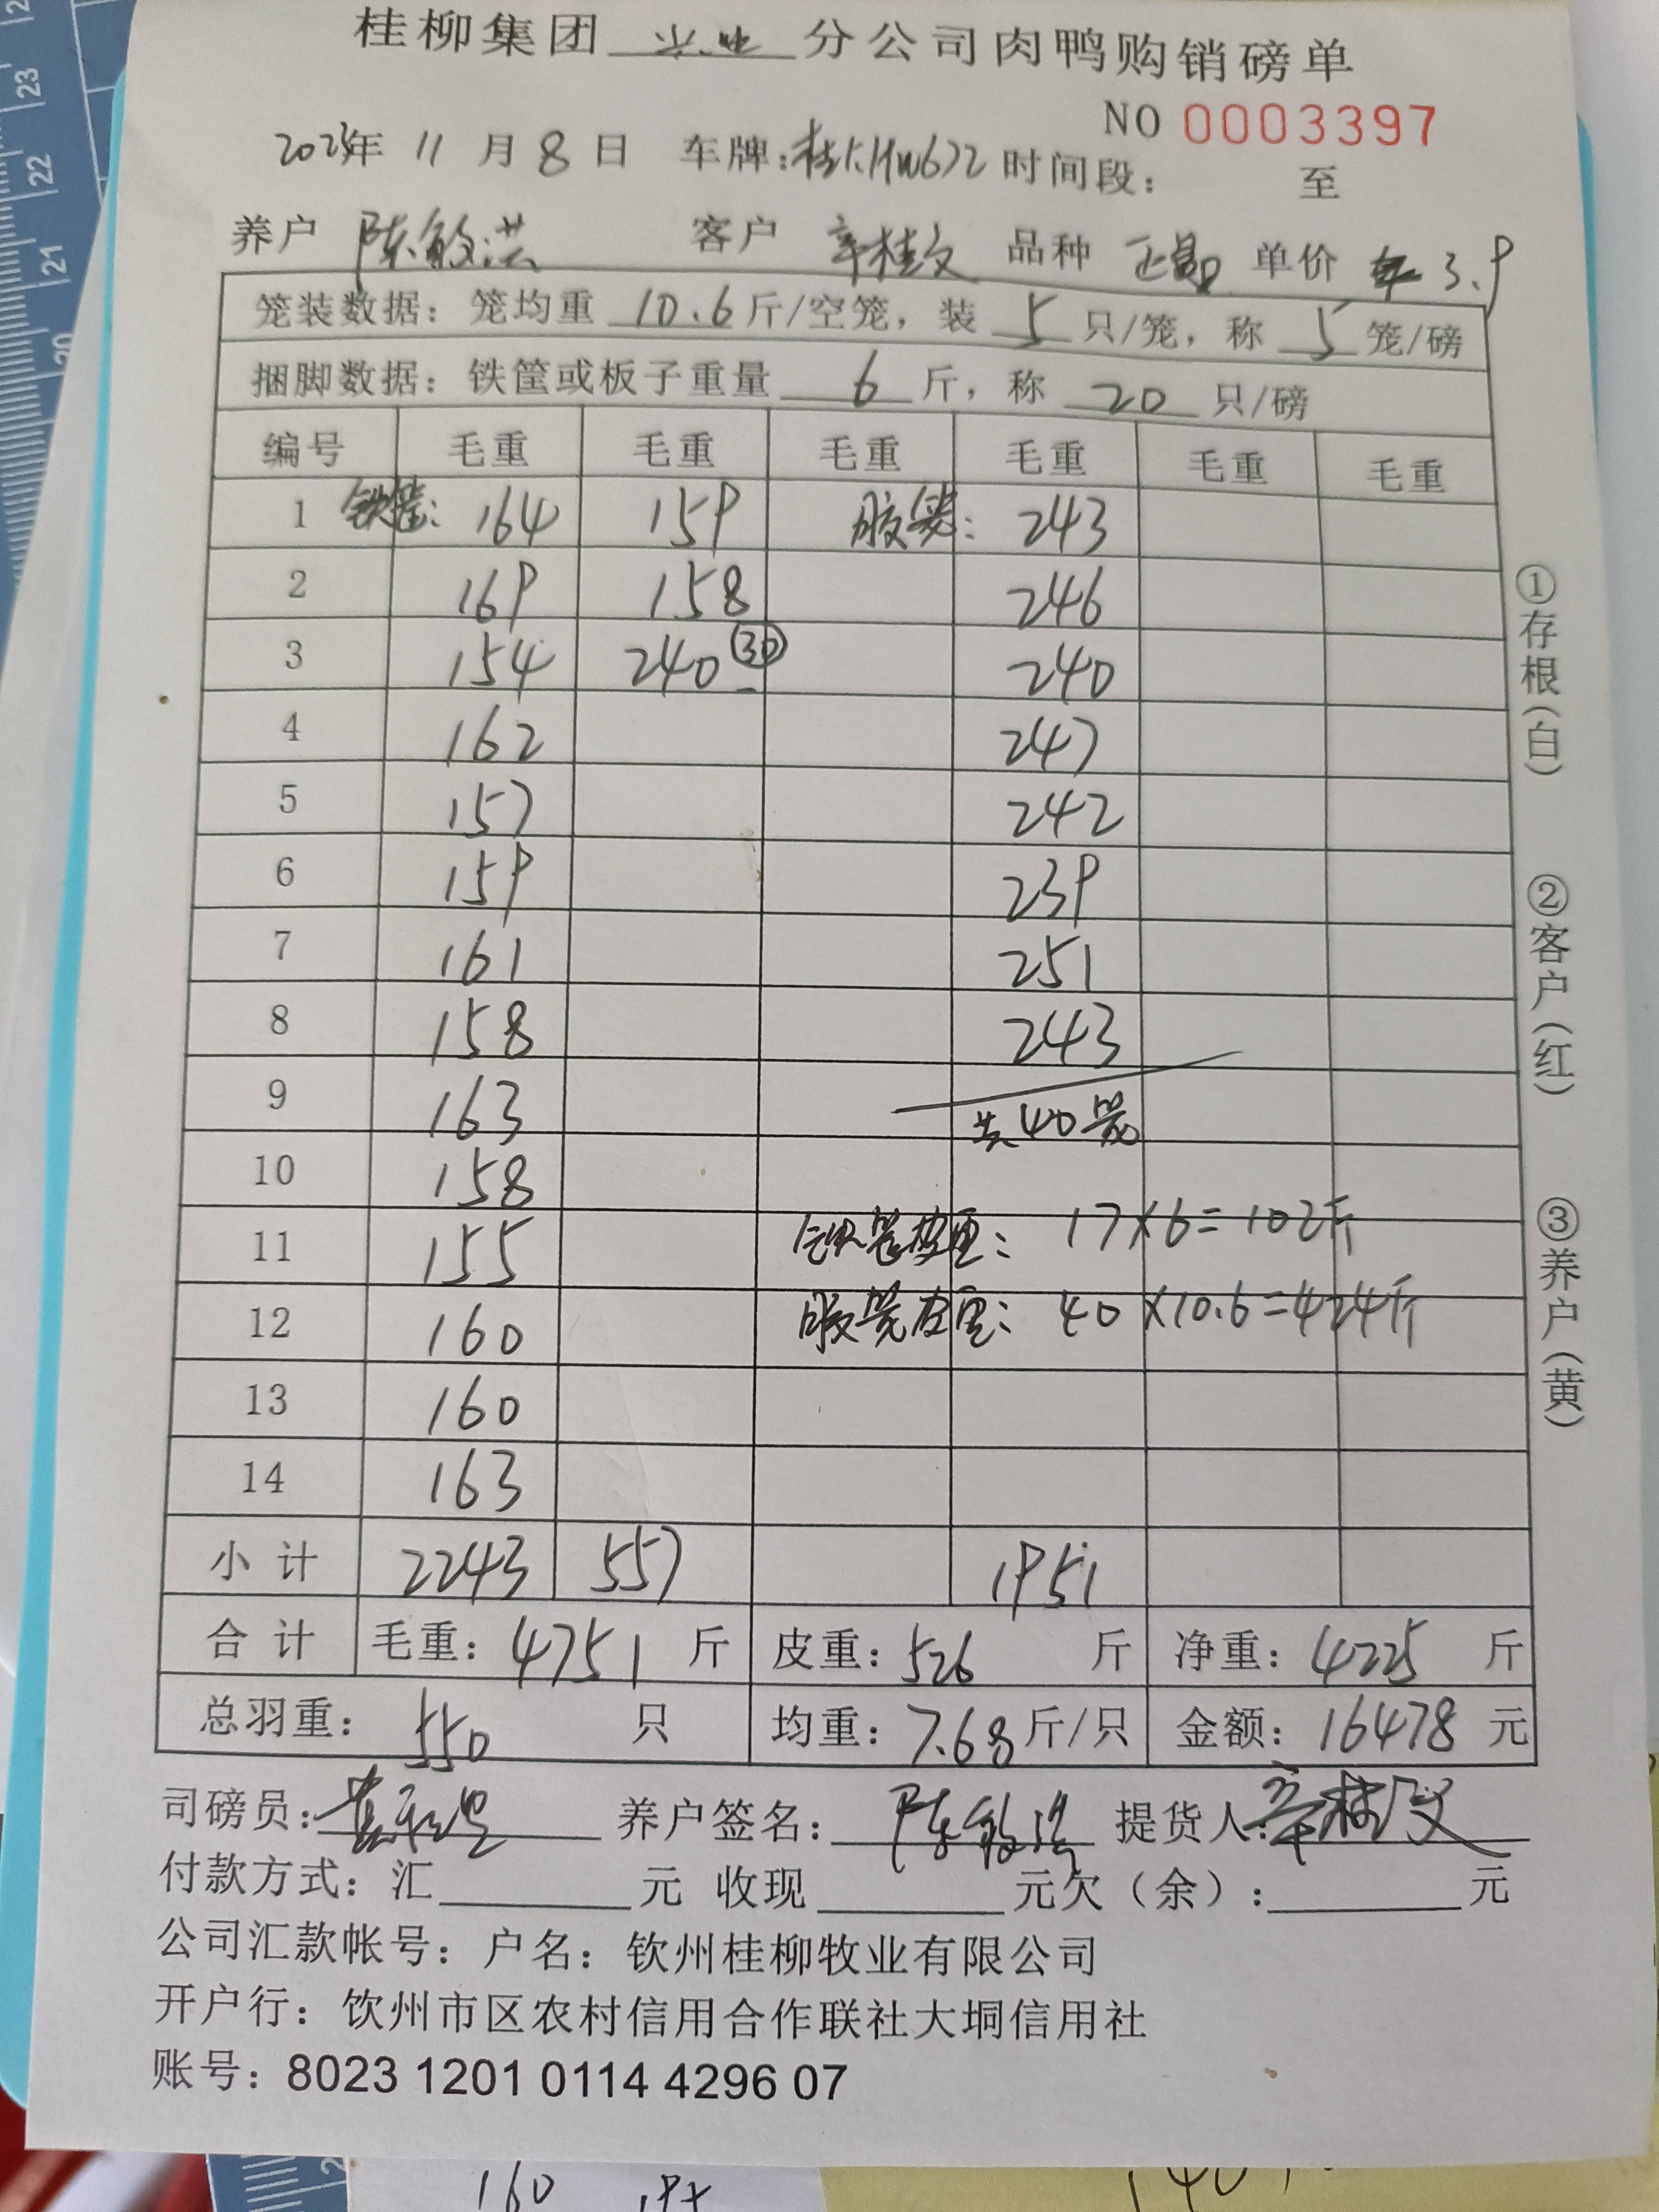 桂柳集团 兴业 分公司肉鸭购销磅单
NO 0003397
2023年 11 月 8 日 车牌: 时间段： 至
养户 陈敏洪 客户 辛桂文 品种 单价 3.9
笼装数据：笼均重 10.6 斤/空笼，装 5 只/笼，称 5 笼/磅
捆脚数据：铁筐或板子重量 6 斤，称 20 只/磅
编号 毛重 毛重 毛重 毛重 毛重 毛重
1 铁筐: 164 159 胶笼: 243
2 169 158 246
3 154 240 ㉚ 240
4 162 247
5 157 242
6 159 239
7 161 251
8 158 243
9 163 共40笼
10 158
11 155 铁笼皮重: 17×6=102斤
12 160 胶笼皮重: 40×10.6=424斤
13 160
14 163
小计 2243 557 1951
合计 毛重：4751 斤 皮重：526 斤 净重：4225 斤
总羽重：550 只 均重：7.68 斤/只 金额：16478 元
司磅员: 养户签名：陈敏洪 提货人:辛桂文
付款方式：汇 元 收现 元欠（余）: 元
公司汇款帐号：户名：钦州桂柳牧业有限公司
开户行：饮州市区农村信用合作联社大垌信用社
账号：8023 1201 0114 4296 07
①存根(白)
②客户(红)
③养户(黄)
23
22
21
20
160